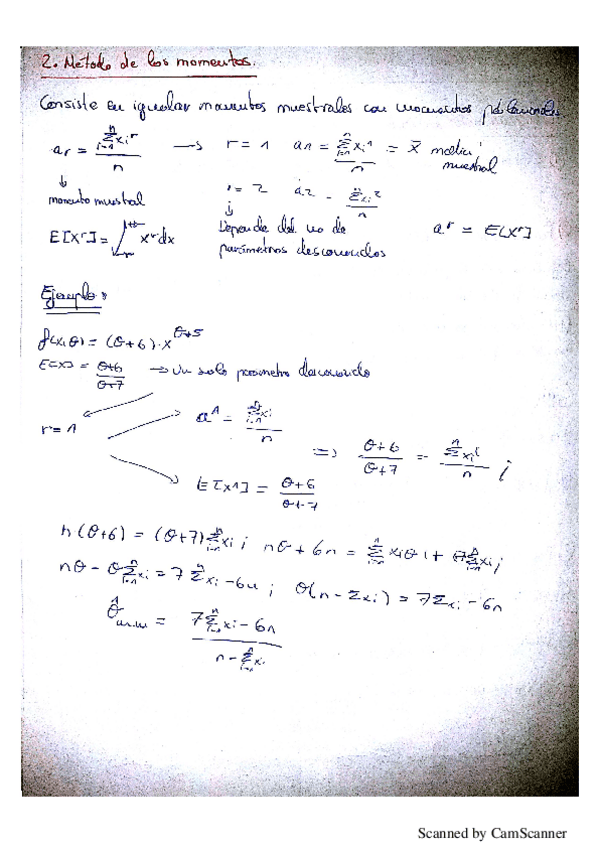 2. Método de los momentos.
Consiste en igualar momentos muestrales con momentos poblacionales
ar = Σ(i=1→n) xi^r / n → r = 1 a1 = Σ(i=1→n) xi^1 / n = x̄ media muestral
↓ momento muestral r = 2 a2 = Σ xi^2 / n
E[X^r] = ∫ x^r dx ↓ Depende del no de parámetros desconocidos a^r = E[X^r]
Ejemplo:
f(x,θ) = (θ+6)·x^(θ+5)
E[X] = (θ+6)/(θ+7) → Un solo parametro desconocido
r = 1 a^1 = Σ(i=1→n) xi / n
⇒ (θ+6)/(θ+7) = Σ(i=1→n) xi / n ;
E[X^1] = (θ+6)/(θ+7)
n(θ+6) = (θ+7) Σ(i=1→n) xi ; nθ + 6n = Σ(i=1→n) xi θ + 7 Σ(i=1→n) xi ;
nθ - θ Σ(i=1→n) xi = 7 Σ(i=1→n) xi - 6n ; θ(n - Σxi) = 7Σxi - 6n
θ̂ = (7 Σ(i=1→n) xi - 6n) / (n - Σ(i=1→n) xi)
Scanned by CamScanner